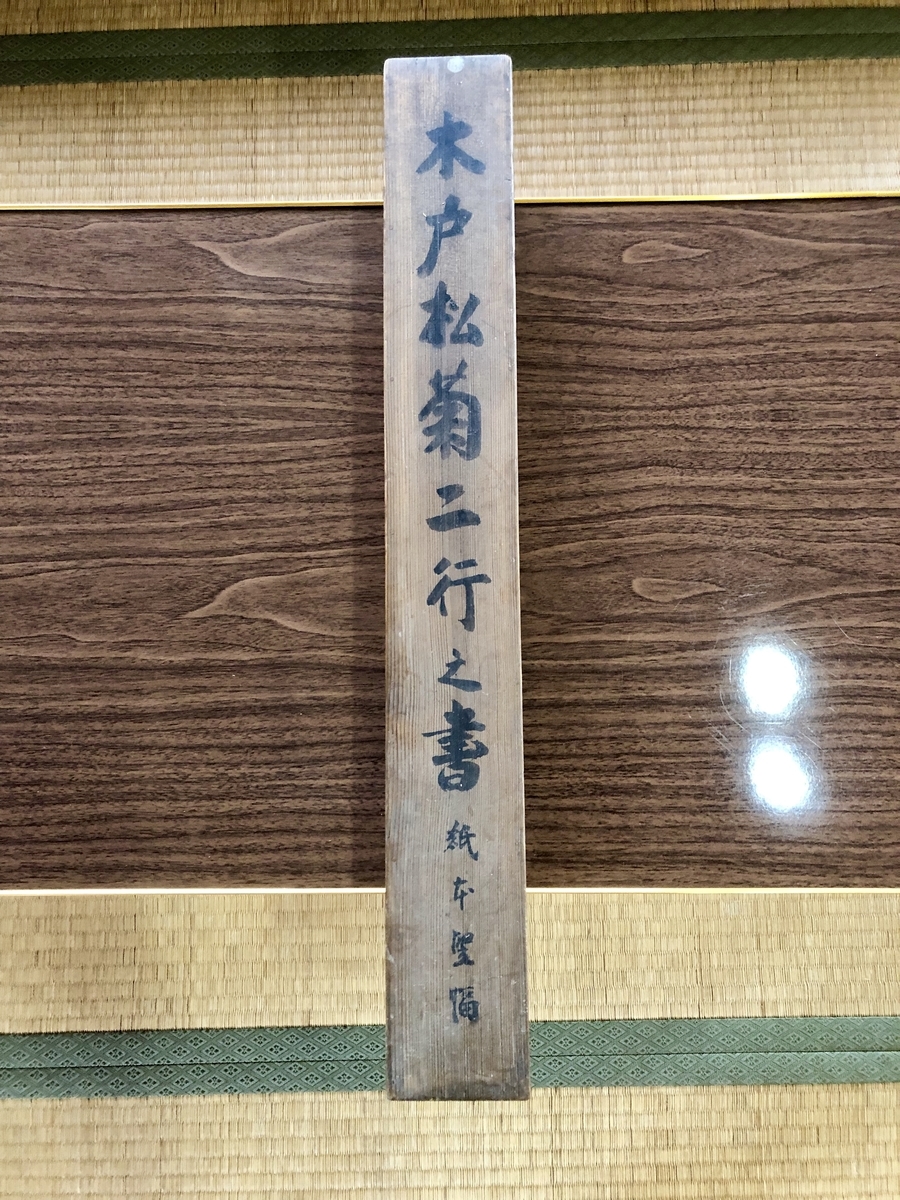 木戸松菊二行之書 紙本竪幅